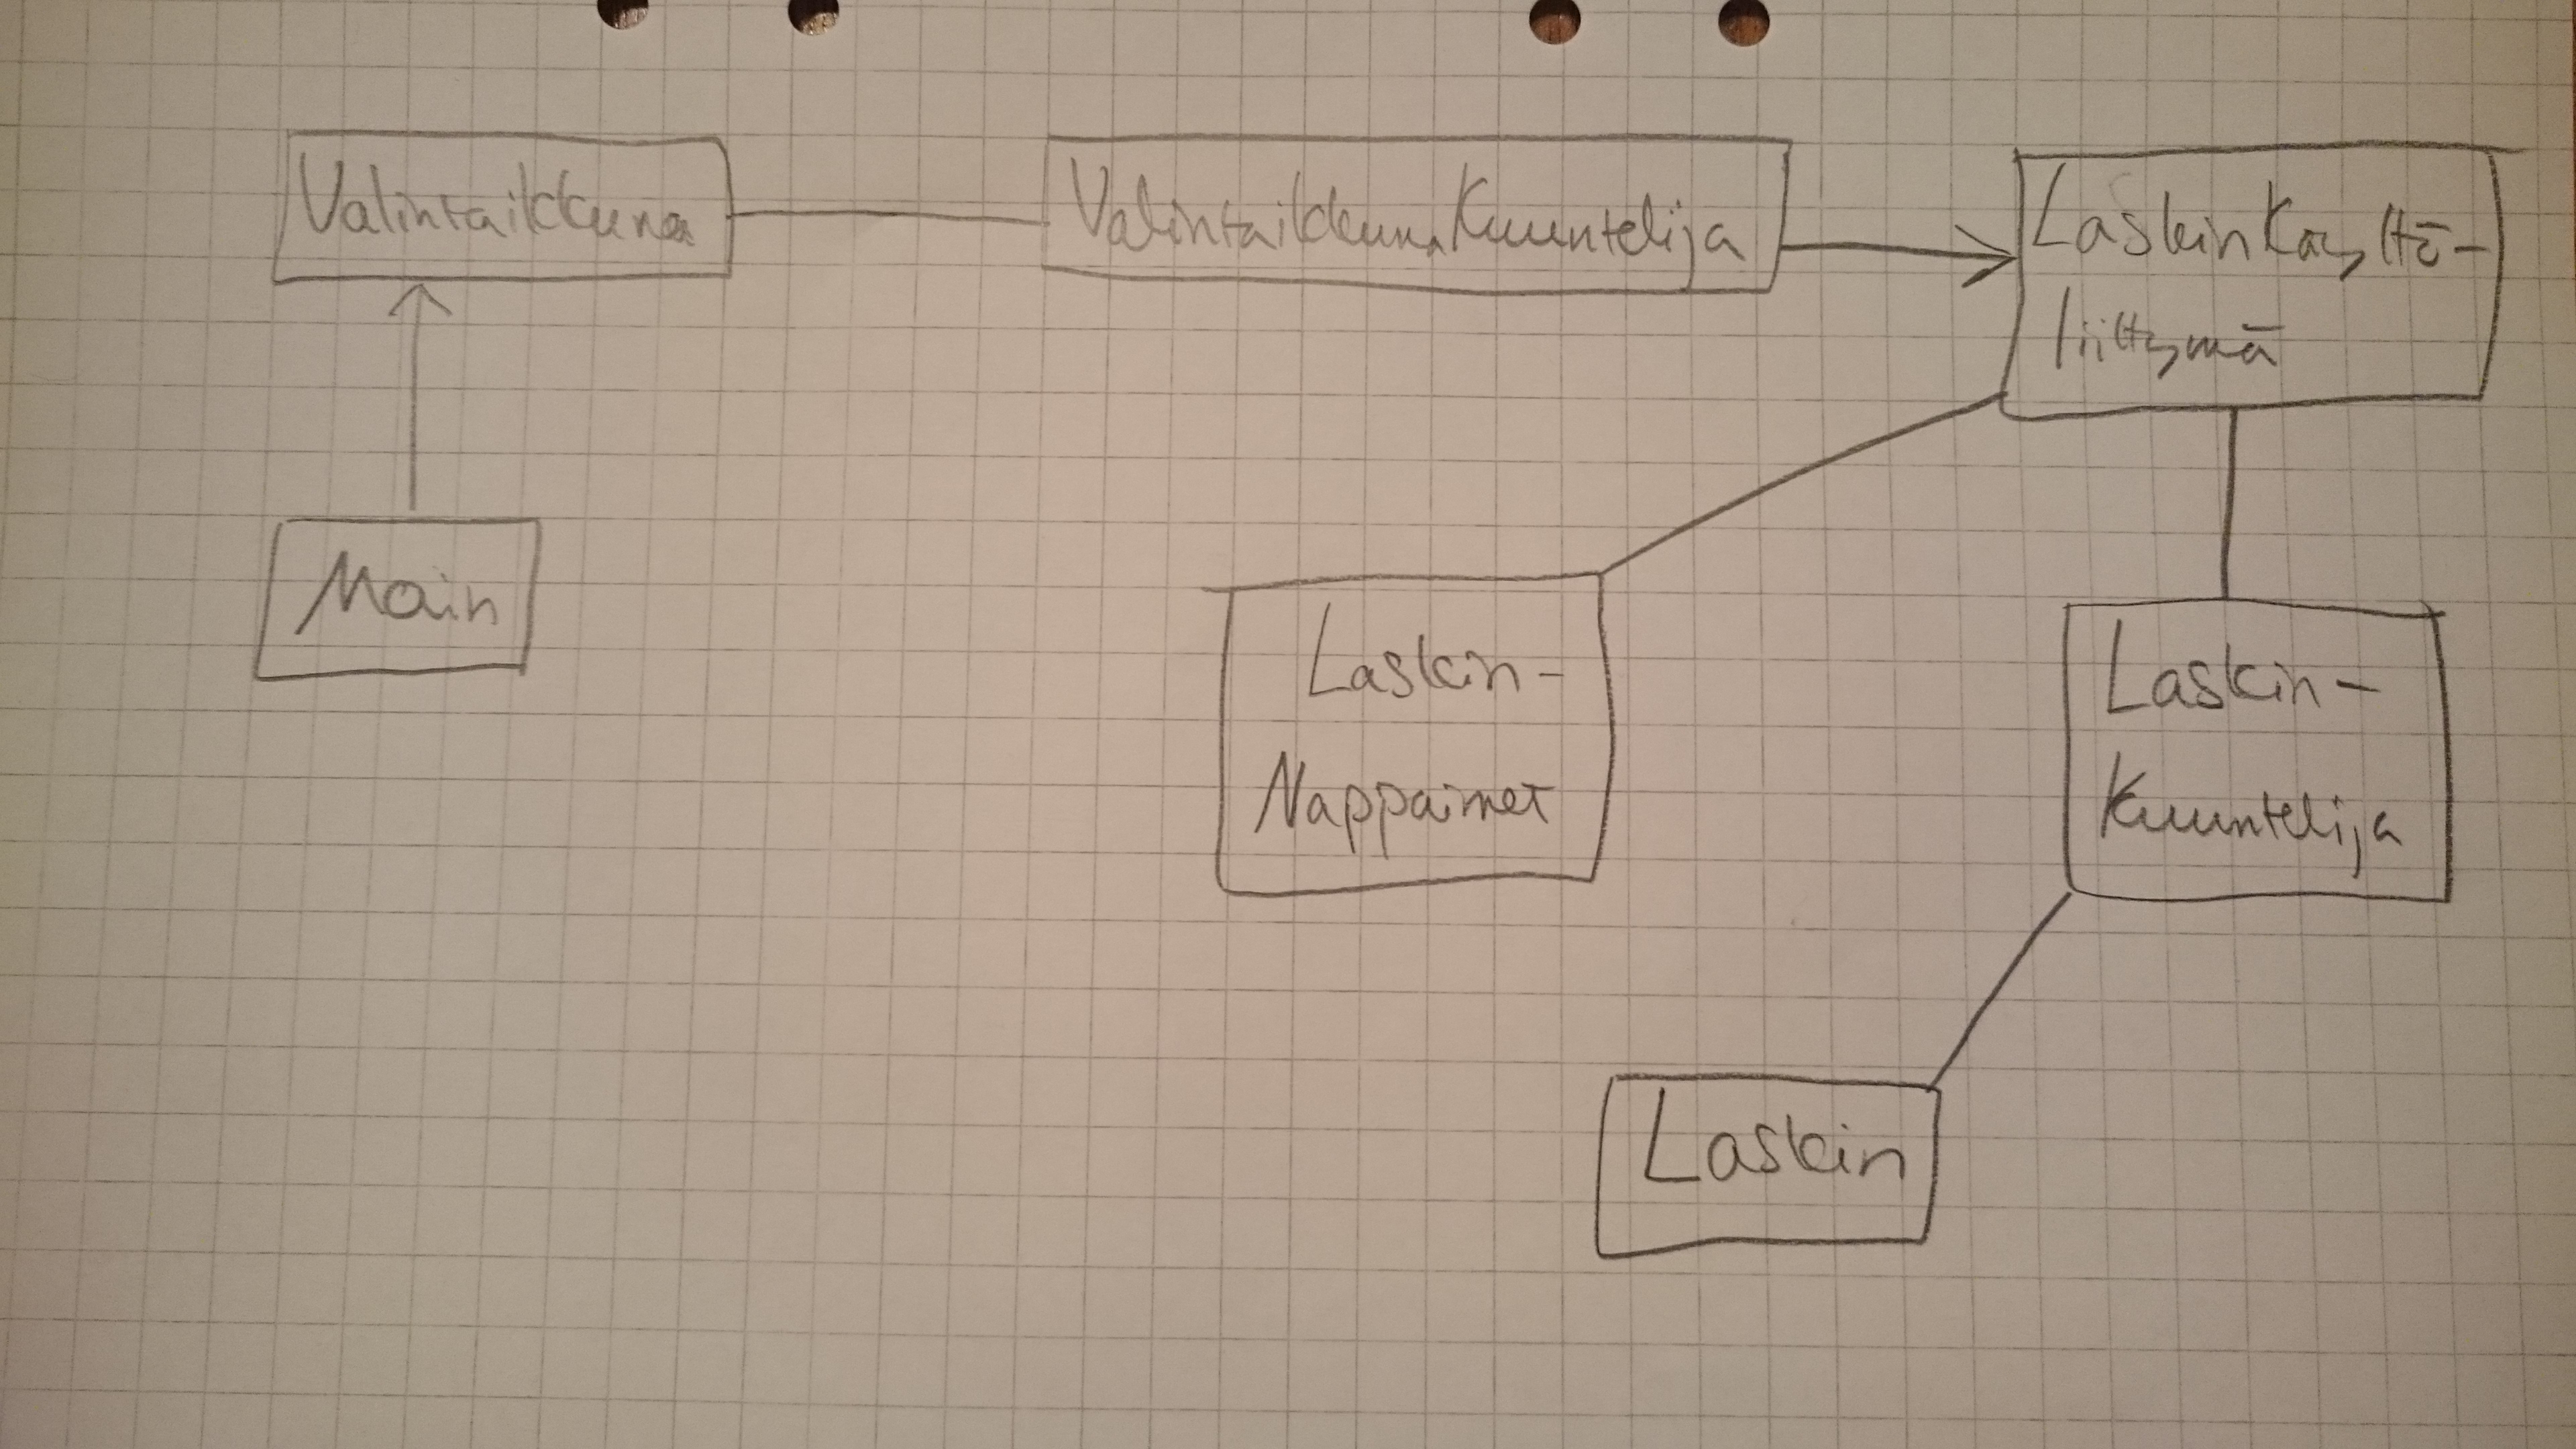 Valintaikkuna
ValintaikkunaKuuntelija
LaskinKäyttö-
liittymä
Main
Laskin-
Nappaimet
Laskin-
Kuuntelija
Laskin